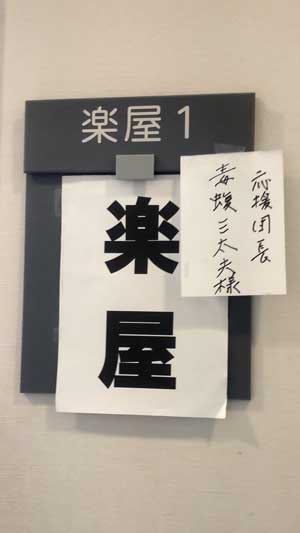 楽屋1
楽屋
応援団長
毒蝮三太夫様